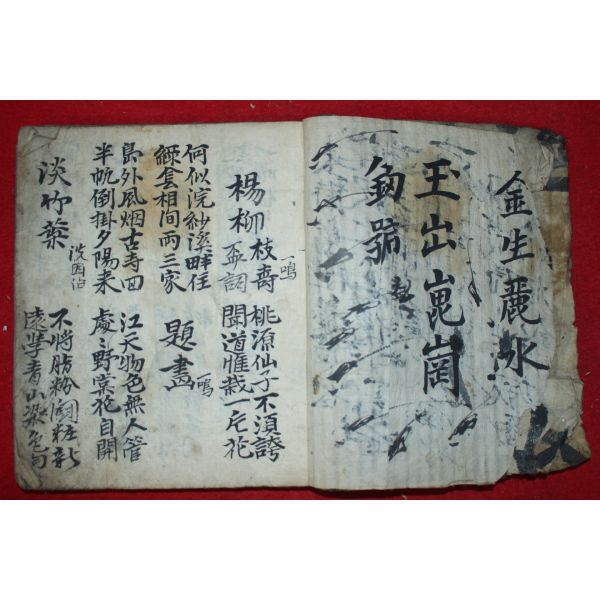 金生麗水
玉出崑崗
釖號
楊柳
枝壽
盃詞
一鳴
桃源仙子不須誇
聞道惟栽一片花
何似浣紗溪畔住
綠雲相間兩三家
題畫
一鳴
島外風烟古寺回
半帆倒掛夕陽來
江天物色無人管
處〻野棠花自開
淡竹葉
不將脂粉鬪粧新
遠學青山染色勻